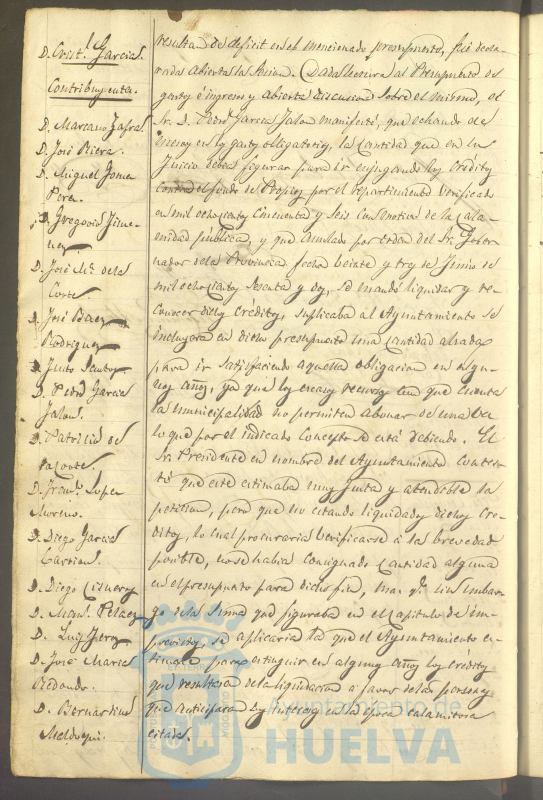 D. Crist.l Garcia.
Contribuyentes.
D. Marcano Zafra
D. José Riera.
D. Miguel Gomez
Pera.
D. Gregorio Jime-
nez.
D. José M.ª de la
Corte.
D. José Baez
Rodriguez
D. Justo
D. Pedro Garcia
Jalon.
D. Patricio de
la Corte.
D. Fran.co Lopez
Moreno.
D. Diego Garcia
D. Diego Cisneros
D. Man.l Pelaez
D. Luis
D. José Maria
Redondo.
D. Bernardino
resultan de deficit en el mencionado presupuesto, fué decla-
rada abierta la sesion. Dada lectura al Presupuesto de
gastos é ingresos y abierta discusion sobre el mismo, el
Sr. D. Pedro Garcia Jalon manifestó, que echando de
menos en los gastos obligatorios, la cantidad que en su
juicio debia figurar para ir enjugando los creditos
contra el fondo de Propios por el repartimiento verificado
en mil ochocientos cincuenta y seis con motivo de la cala-
midad publica, y que anulado por orden del Sr. Gober-
nador de la Provincia fecha veinte y tres de Junio de
mil ochocientos sesenta y dos, se mandó liquidar y re-
conocer dichos créditos, suplicaba al Ayuntamiento se
incluyera en dicho presupuesto una cantidad alzada
para ir satisfaciendo aquella obligacion en algu-
nos años, ya que los escasos recursos con que cuenta
la municipalidad no permiten abonar de una vez
lo que por el indicado concepto se está debiendo. El
Sr. Presidente en nombre del Ayuntamiento contes-
tó que este estimaba muy justa y atendible la
peticion, pero que no estando liquidados dichos cre-
ditos, lo cual procuraria verificarse á la brevedad
posible, no se habia consignado cantidad alguna
en el presupuesto para dicho fin, mas q.e sin embar-
go de la suma que figuraba en el Capitulo de im-
previstos, se aplicaria la que el Ayuntamiento es-
timara para estinguir en algunos años los créditos
que resultasen de la liquidacion á favor de las personas
que anticiparon los intereses en la época calamitosa
citada.
Ayuntamiento de
HUELVA